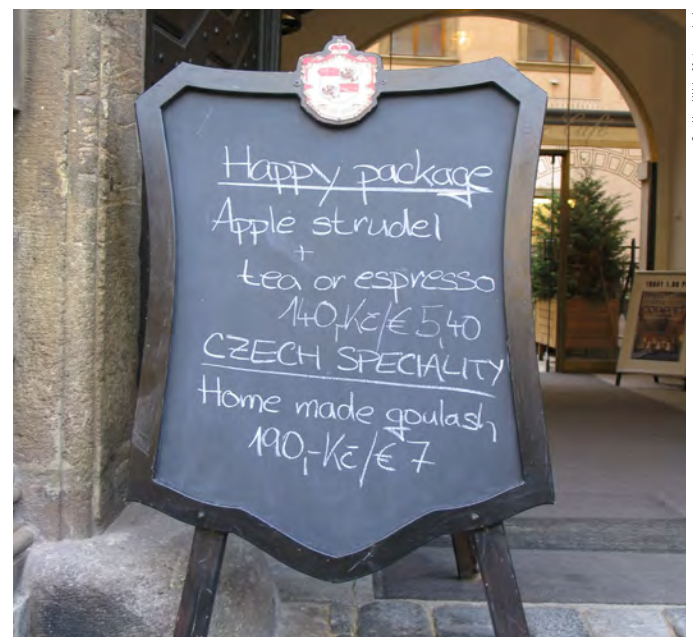 Happy package
Apple strudel
+
tea or espresso
140,-Kč/€5,40
CZECH SPECIALITY
Home made goulash
190,-Kč/€7
Café